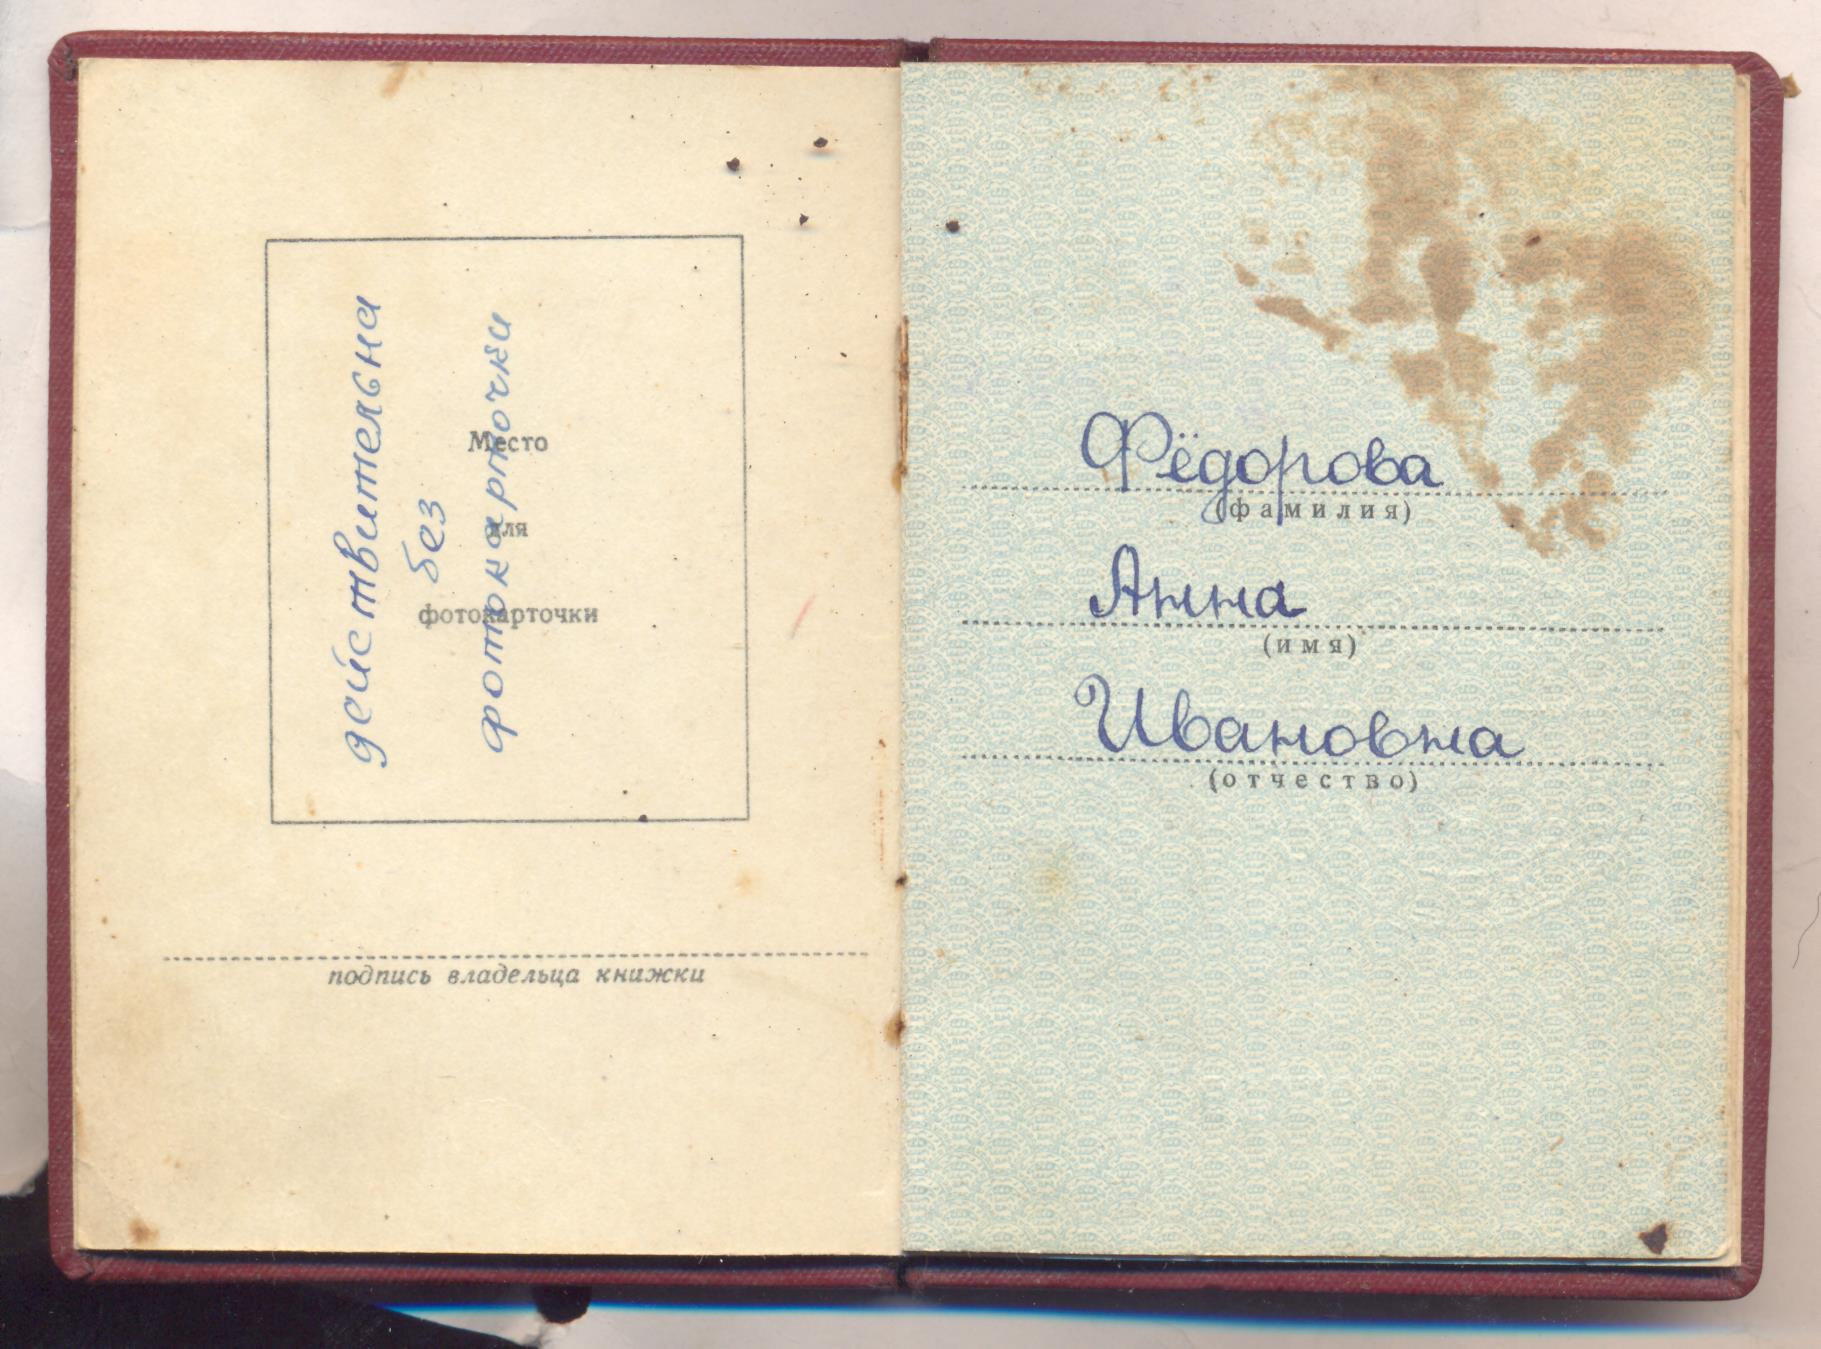 действительна
без
фотокарточки
Место
для
фотокарточки
подпись владельца книжки
Фёдорова
(фамилия)
Анна
(имя)
Ивановна
(отчество)